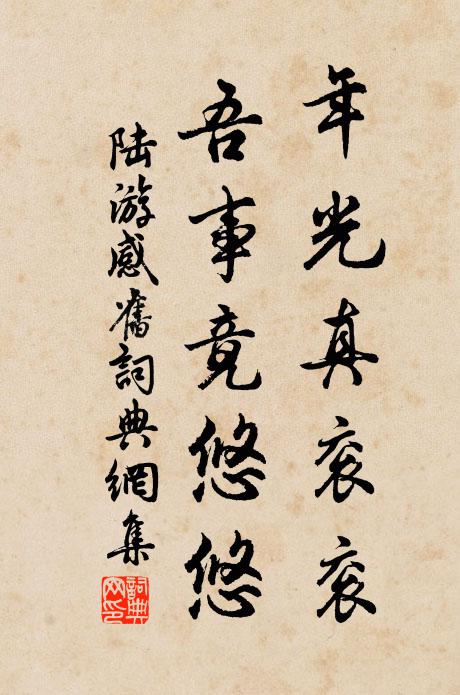 年光真衮衮
吾事竟悠悠
陆游感舊詞典網集
詞典網印